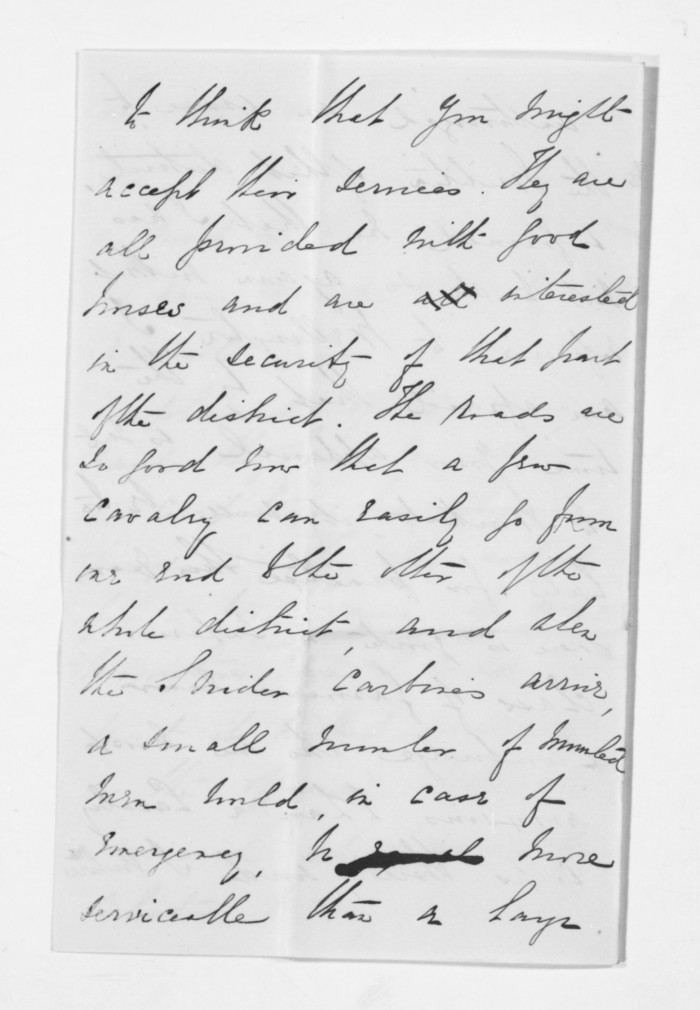 to think that you might
accept their services. They are
all provided with good
horses and are all interested
in the security of that part
of the district. The roads are
so good now that a few
cavalry can easily go from
one end to the other of the
whole district, and when
the Snider Carbines arrive,
a small number of mounted
men would, in case of
emergency, be more
serviceable than a large